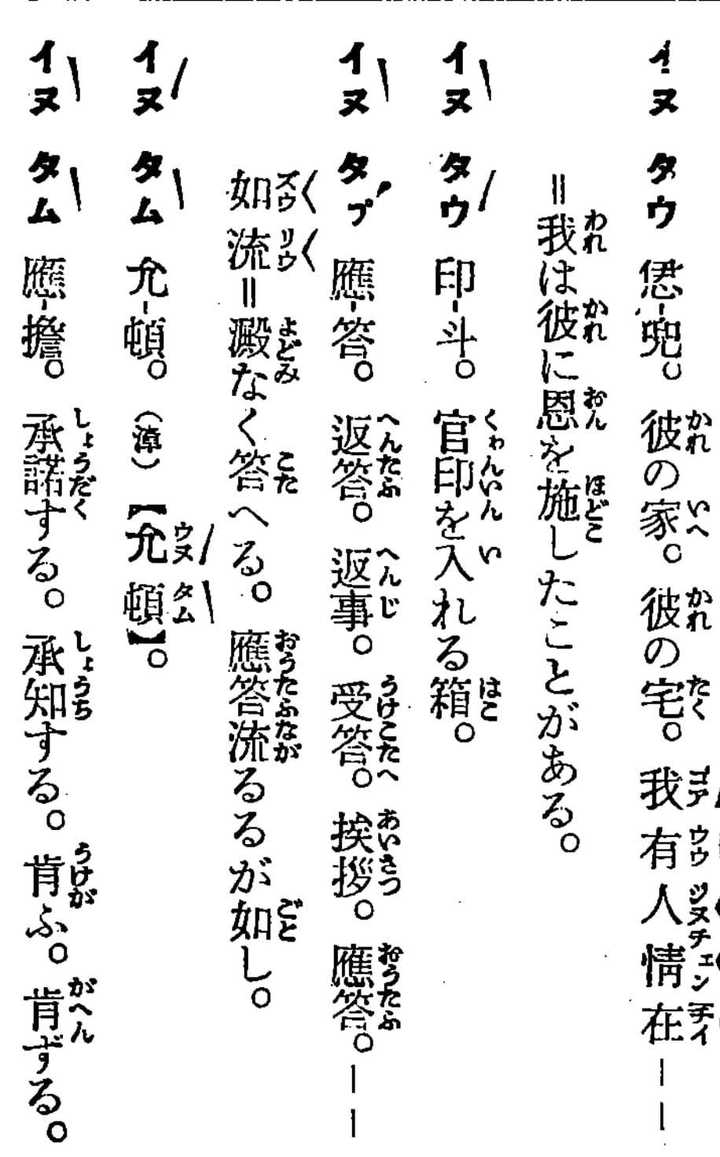 イヌ タウ 恁-兜。彼の家。彼の宅。我有人情在――
=我は彼に恩を施したことがある。
イヌ タウ 印-斗。官印を入れる箱。
イヌ タプ 應-答。返答。返事。受答。挨拶。應答。――
如流=澱なく答へる。應答流るるが如し。
イヌ タム 允-頓。(漳)【允頓】。
イヌ タム 應-擔。承諾する。承知する。肯ふ。肯ずる。